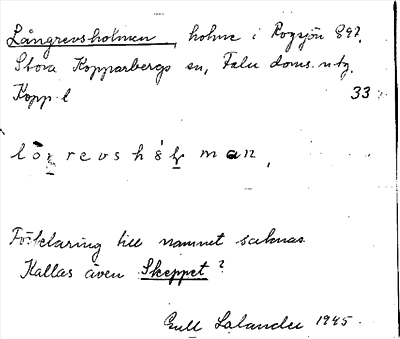 Långrevsholmen, holme i Rogsjön 892,
Stora Kopparbergs sn, Falu doms. ntg.
Kopp. l 33
lòŋrevshólman,
Förklaring till namnet saknas.
Kallas även Skeppet?
Gull Lalander 1945.